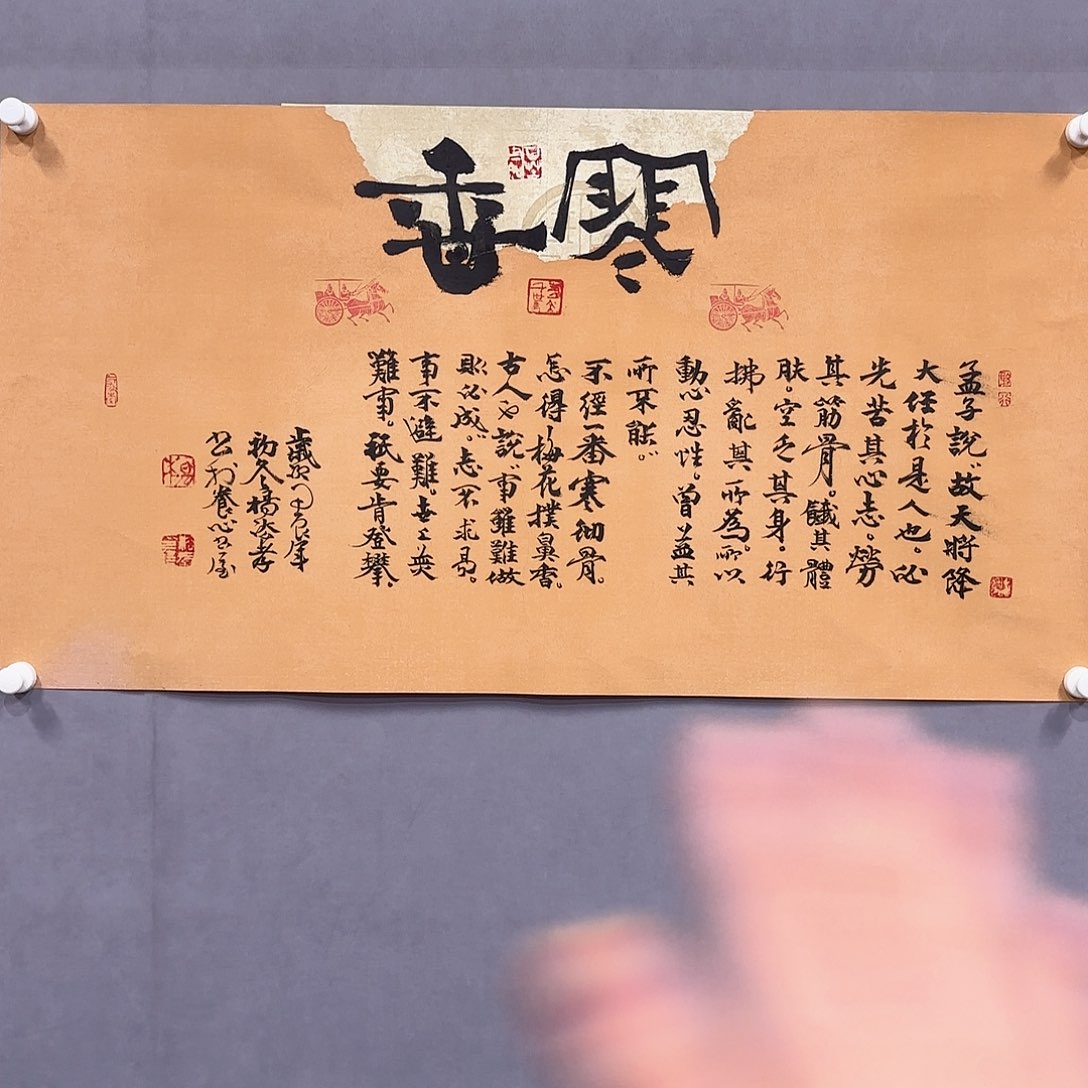 寒香
孟子說"故天將降
大任於是人也。必
先苦其心志。勞
其筋骨。餓其體
膚。空乏其身。行
拂亂其所為。所以
動心忍性。曾益其
所不能。"
不經一番寒徹骨。
怎得梅花撲鼻香。
古人又說"事雖難做
則必成。"志不求易。
事不避難。世上無
難事。祇要肯登攀。
初冬
養心